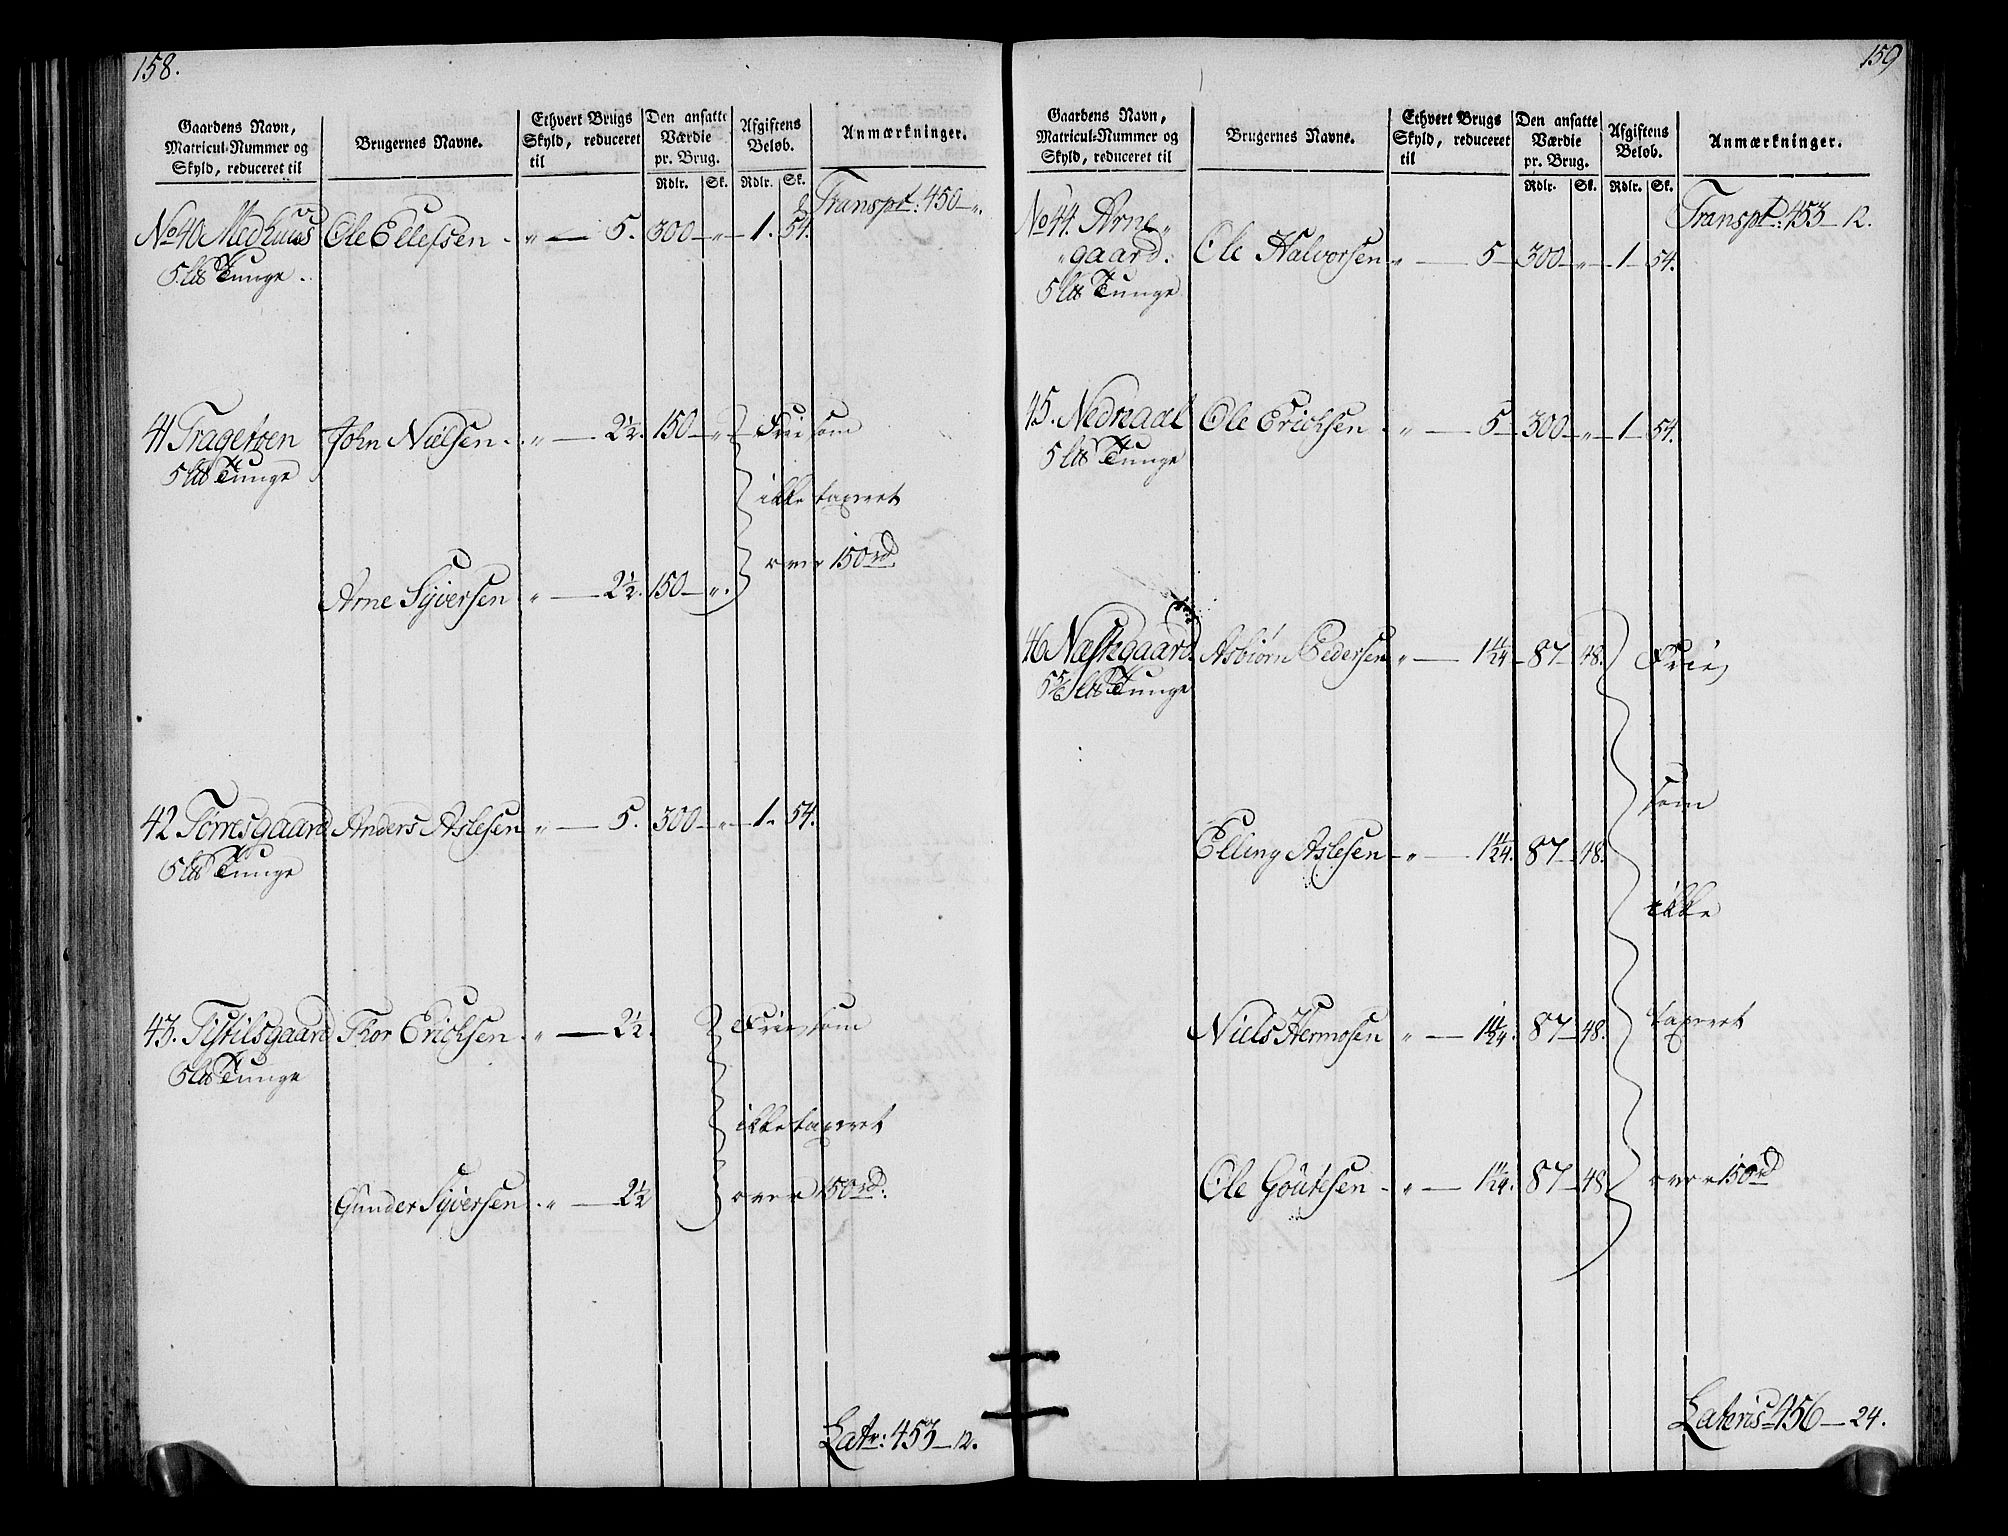 158.
Gaardens Navn, Matricul-Nummer og Skyld, reduceret til
Brugernes Navne.
Ethvert Brugs Skyld, reduceret til
Den ansatte Værdie pr. Brug.
Afgiftens Beløb.
Anmærkninger.
Rdlr. Sk. Rdlr. Sk.
Transpt: 450 — „.
No 40 Medhuus Ole Ellefsen . „ — 5. 300 — „ — 1. 54.
5 lb Tunge .
41 Tragetøen John Nielsen . „ — 2½. 150 — „ Frie som
5 lb Tunge
ikke taxeret
over 150 rd.
Arne Syversen „ — 2½. 150 — „.
42 Tørresgaard Anders Aslesen „ — 5. 300 — „ — 1. 54.
5 lb Tunge
43. Tistilsgaard Thor Erichsen . „ — 2½. Frie, som
5 lb Tunge
ikke taxeret
Gunder Syversen . „ — 2½ over 150 rd.
Latr: 453 — 12.
159
Gaardens Navn, Matricul-Nummer og Skyld, reduceret til
Brugernes Navne.
Ethvert Brugs Skyld, reduceret til
Den ansatte Værdie pr. Brug.
Afgiftens Beløb.
Anmærkninger.
Rdlr. Sk. Rdlr. Sk.
Transpt: 453 — 12.
No 44. Arne„
„gaard. Ole Halvorsen „ — 5 — 300 — „ — 1 — 54.
5 lb Tunge
45. Nedreaal Ole Erichsen . „ — 5 — 300 — „ — 1 — 54.
5 lb Tunge
46 Næstegaard Asbiørn Pedersen „ — 1 11/24 — 87 — 48. Frie,
5 5/6 lb Tunge
som
Elling Aslesen — „ — 1 11/24. 87 — 48.
ikke
Niels Hermosen „ — 1 11/24. 87 — 48. taxeret
Ole Goutesen — „ — 1 11/24. 87 — 48 over 150 rd
Lateris 456 — 24.